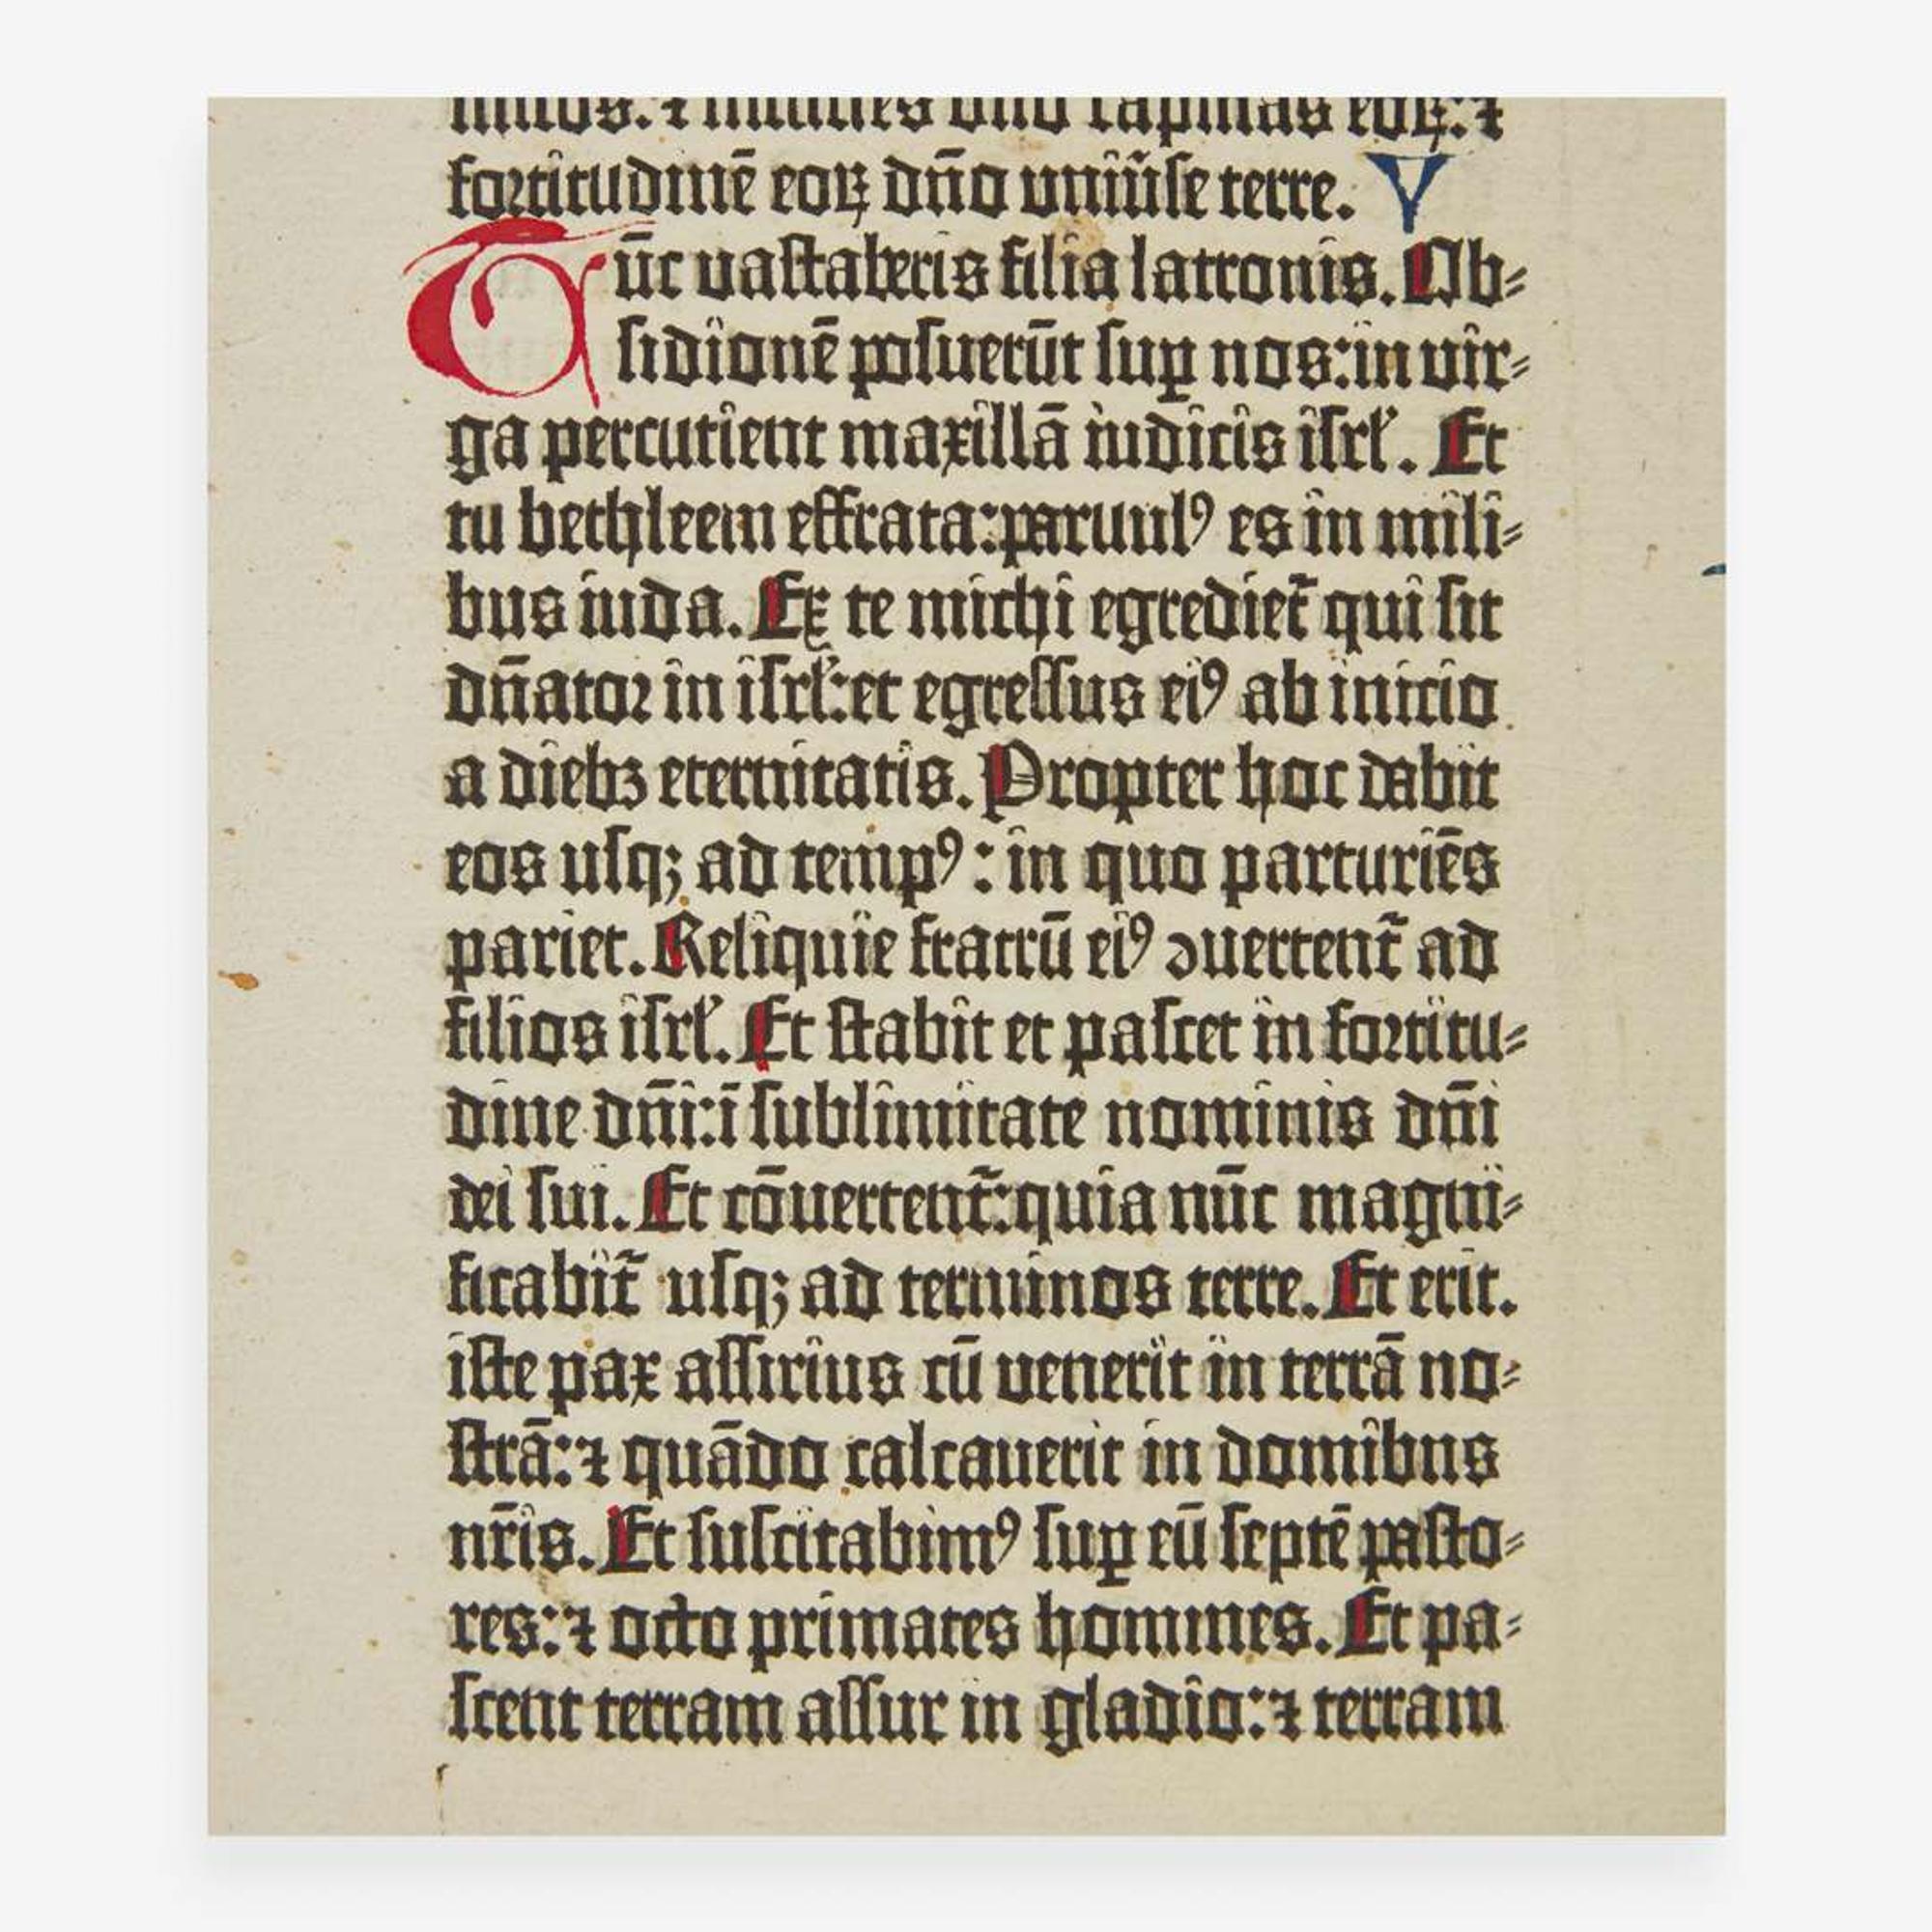 minuos.⁊ interficies dño rapinas eoꝝ:⁊
fortitudinē eoꝝ dño uniũse terre. V
Tūc uastaberis filia latronis. Ob⸗
sidionē posuerūt suꝑ nos:in uir⸗
ga percutient maxillā iudicis isrł. Et
tu bethleem effrata:paruulꝰ es in mili⸗
bus iuda. Ex te michi egrediet᷑ qui sit
dñator in isrł:et egressus eiꝰ ab inicio
a diebꝫ eternitatis. Propter hoc dabit
eos usqꝫ ad tempꝰ: in quo parturiēs
pariet. Reliquie fratrū eiꝰ ↄuertent᷑ ad
filios isrł. Et stabit et pascet in fortitu⸗
dine dñi:ī sublimitate nominis dñi
dei sui. Et cōuertent᷑:quia nūc magni⸗
ficabit᷑ usqꝫ ad terminos terre. Et erit.
iste pax assirius cū uenerit in terrā no⸗
strā:⁊ quādo calcauerit in domibus
nr̄is. Et suscitabimꝰ suꝑ eū septē pasto⸗
res:⁊ octo primates homines. Et pa⸗
scent terram assur in gladio:⁊ terram